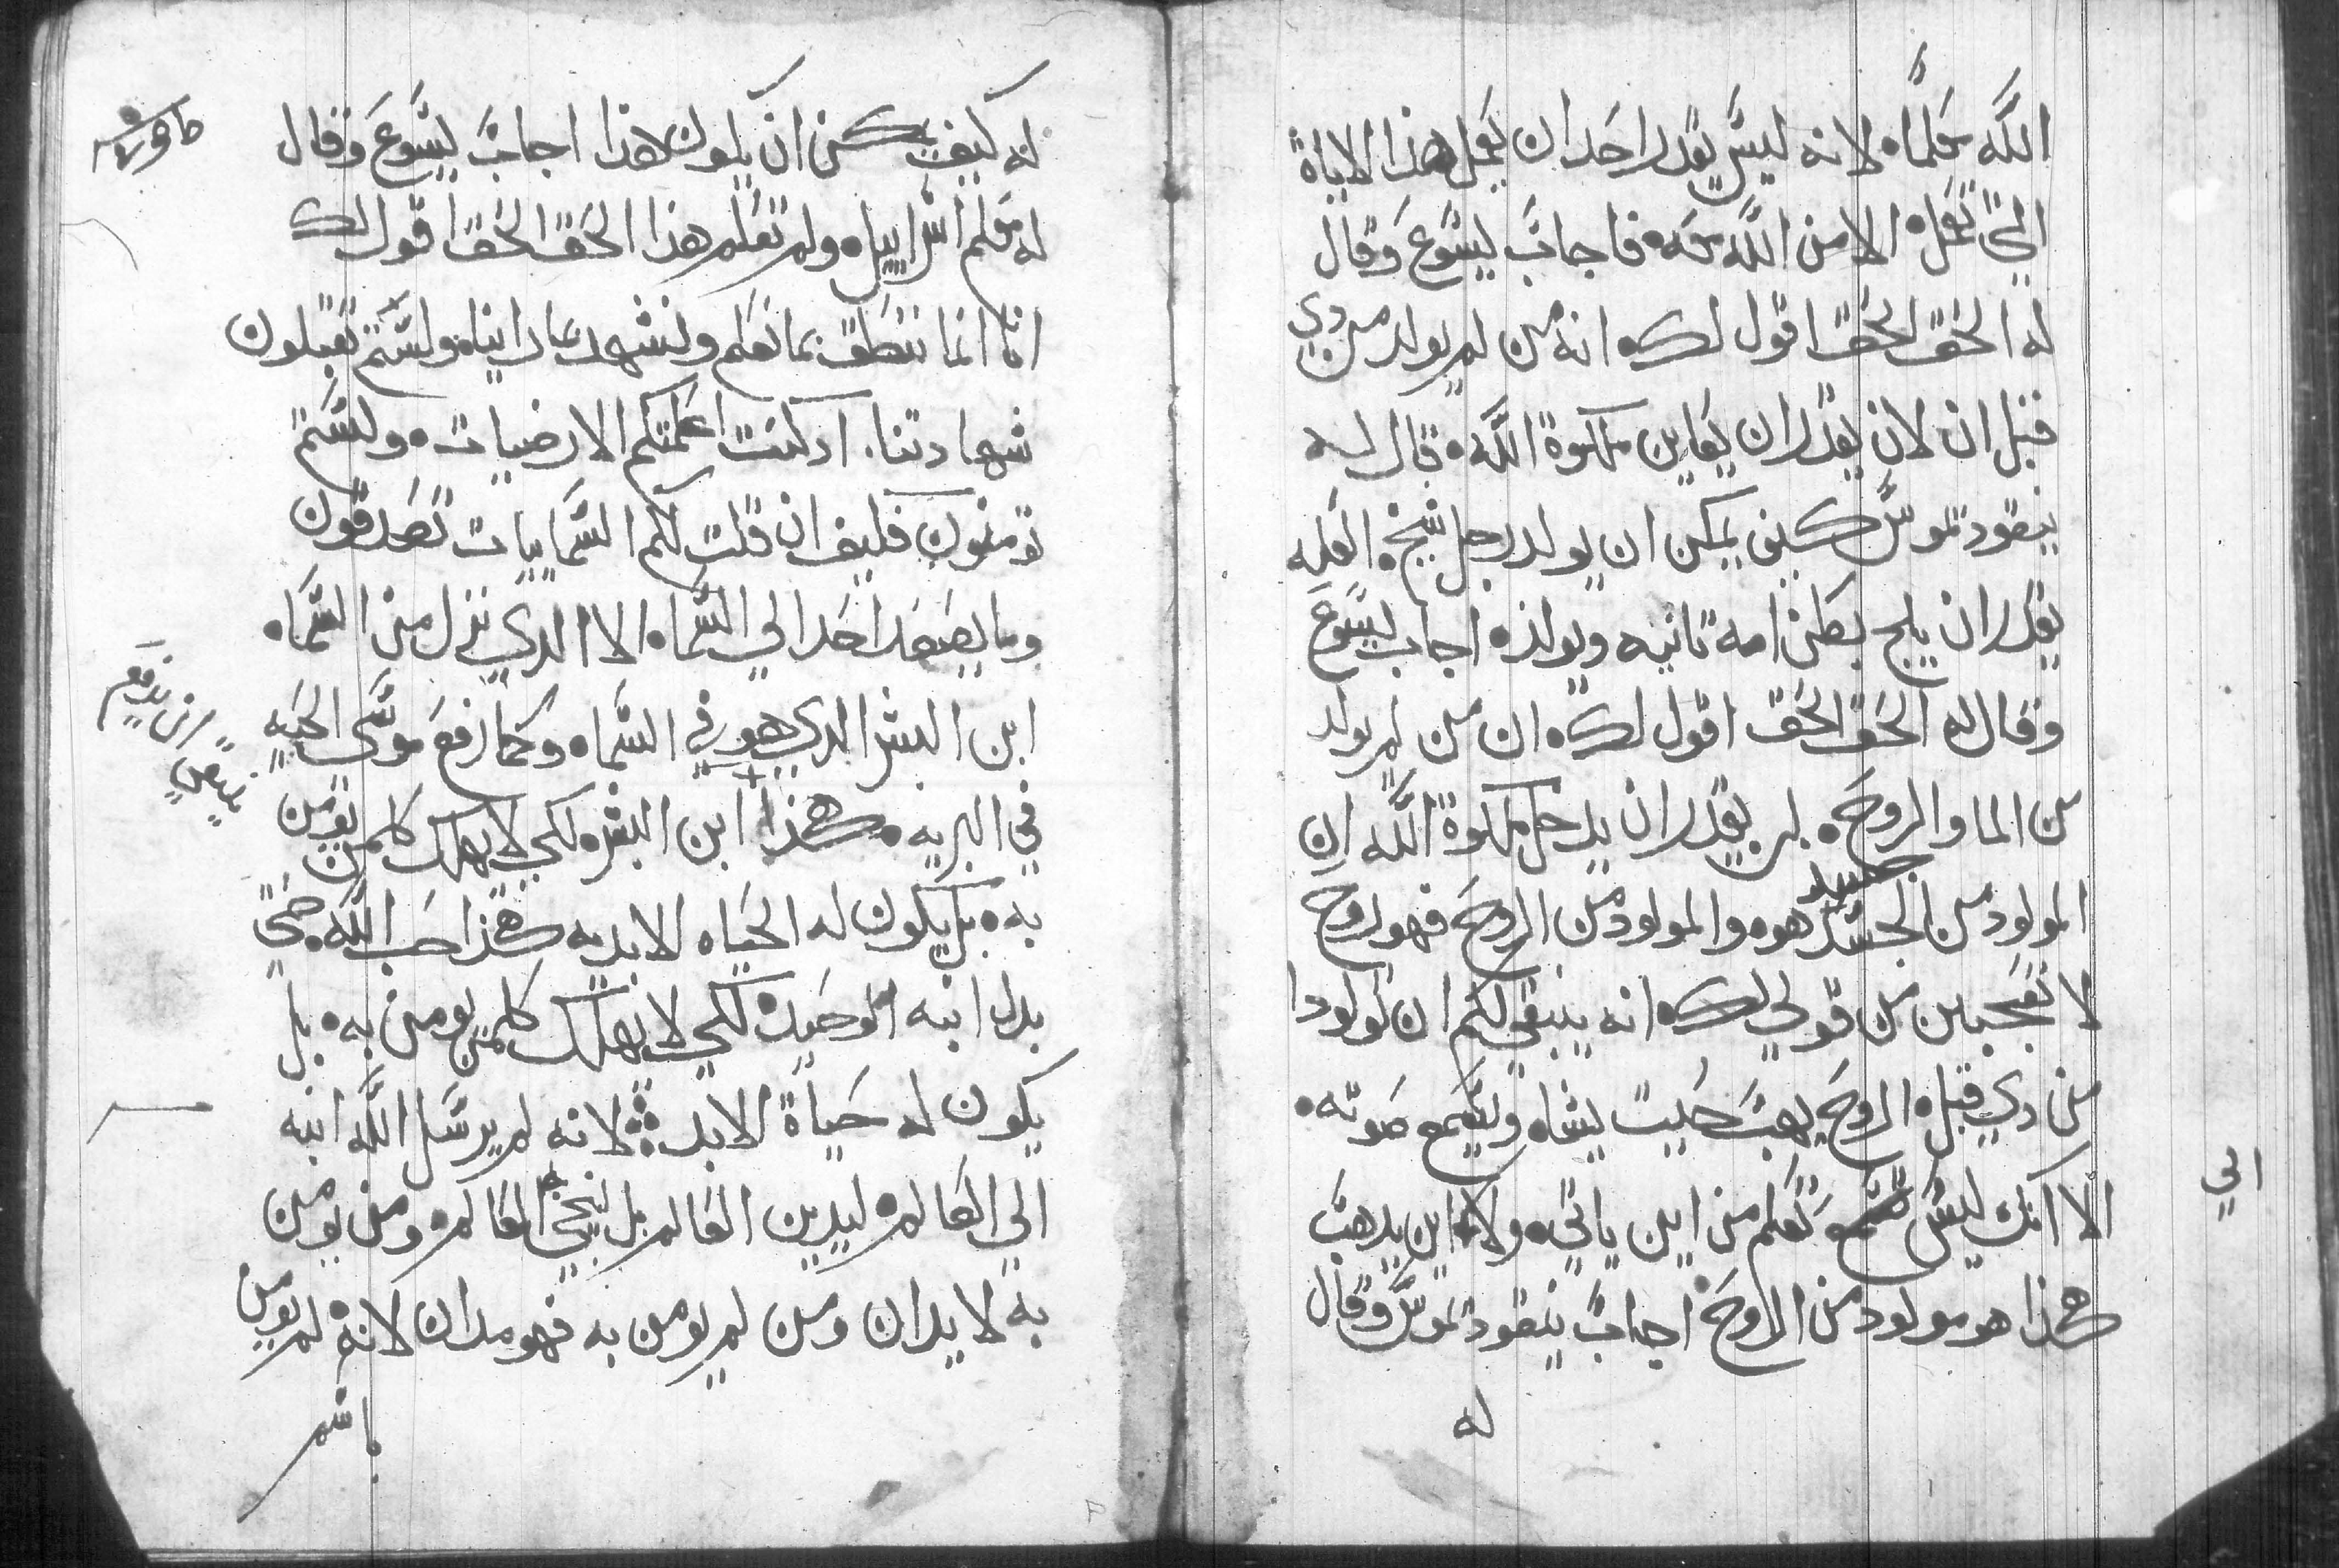 اللّه معَلمًا ه لانه ليسَ يقدر احَد ان يعَمل هذا الاياة
التي تعَمله الا من اللّه معَه فاجابَ يسَوعَ وَقال
له الحَق الحَق اقول لك ه انه من لم يولد من دي
قبل ان لان يقدر ان يعَاين ملكوة اللّه ه قال له
نيقودتموسَ كيف يمكن ان يولد رجل شيخ ه العَله
يقدر ان يلج بطن امه تانيه ويولد ه اجاب يسَوعَ
وقال له الحَق الحَق اقول لك ه ان من لم يولد
من الما والروحَ ه لن يقدر ان يدخل ملكوة اللّه ان
المولود من الجسَد جسد هو ه والمولود من الروحَ فهو روح
لا تعَجبن من قولي لك ه انه ينبغي لكم ان تولودا
من دي قبل ه الروحَ يهبَ حَيت يشاه وتسَمع صَوته ه
الا انك ليسَ تسَمع تعَلم من اين ياتي ه ولا الي اين يدهبَ
هكذا هو مولود من الروحَ ه اجابَ نيقودتموسَ وقال
له
الي
له كيف يمكن ان يكون هذا اجابَ يسَوعَ وَقال
له معَلم اسَراييل ه ولم تعَلم هذا الحَق الحَق اقول لك
اننا انما ننطق بما نعَلم ونشهد بما راينا ه ولسَتم تقبلون
شهادتنا ه اد كنت اعَلمتكم الارضيات ه ولسَتم
تومنون فكيف ان قلت لكم السَماييات تصَدقون
وما يصَعَد احَد الي السَماه الا الدي نزل من السَماه
ابن البشر الدي هو في السَماه وكما رفعَ موسَي الحَيه
في البريه ه هكذا ابن البشر ه لكي لا يهلك كلمن يومن
به ه بل يكون له الحَياه الابديه هكذا احَب اللّه حتي
بدل ابنه الوحَيد ه لكي لا يهلك كلمن يومن به ه بل
يكون له حَياة الابد لانه لم يرسَل اللّه ابنه
الي العَالم ه ليدين العَالم بل لينجي به العَالم ه ومن يومن
به لا يدان ومن لم يومن به فهو مدان لانه لم يومن
باسم
ينبغي ان يرفع